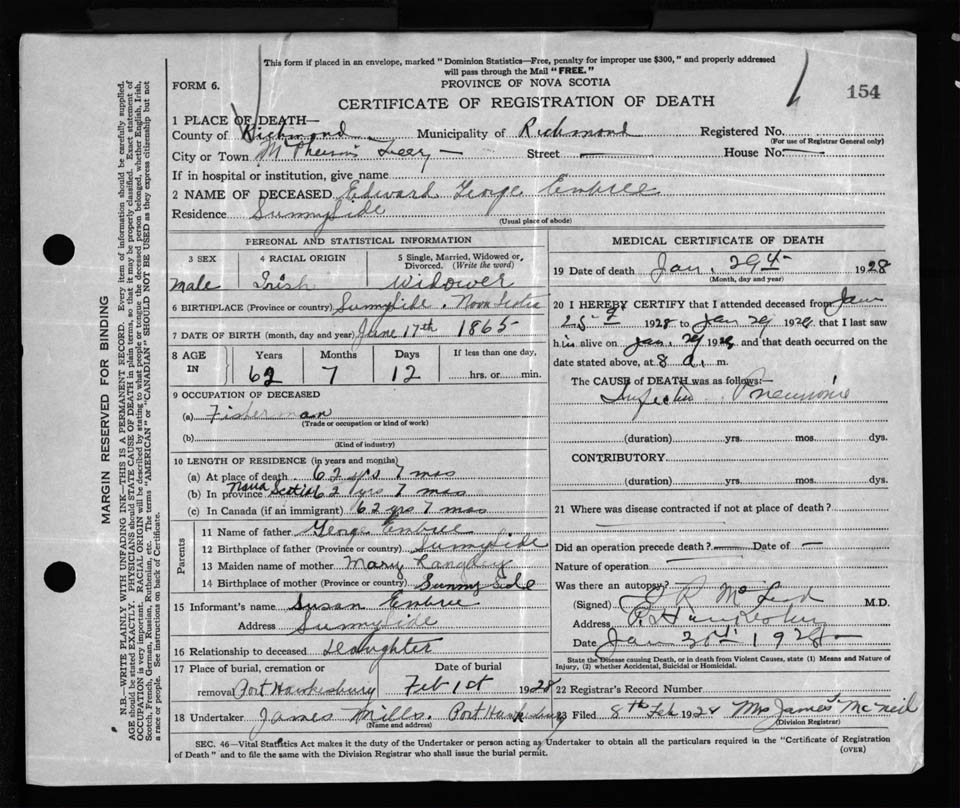 This form if placed in an envelope, marked "Dominion Statistics—Free, penalty for improper use $300," and properly addressed
will pass through the Mail "FREE."
FORM 6.
PROVINCE OF NOVA SCOTIA
154
CERTIFICATE OF REGISTRATION OF DEATH
1 PLACE OF DEATH—
County of Richmond Municipality of Richmond Registered No.
(For use of Registrar General only)
City or Town Street — House No. —
If in hospital or institution, give name
2 NAME OF DECEASED Edward George Embree
Residence Sunnyside
(Usual place of abode)
PERSONAL AND STATISTICAL INFORMATION
3 SEX 4 RACIAL ORIGIN 5 Single, Married, Widowed or Divorced. (Write the word)
Male Irish Widower
6 BIRTHPLACE (Province or country) Sunnyside. Nova Scotia
7 DATE OF BIRTH (month, day and year) June 17th 1865
8 AGE IN Years Months Days If less than one day,
62 7 12 hrs. or min.
9 OCCUPATION OF DECEASED
(a) Fisherman
(Trade or occupation or kind of work)
(b)
(Kind of industry)
10 LENGTH OF RESIDENCE (in years and months)
(a) At place of death 62 yrs 7 mos
(b) In province Nova Scotia 62 yrs 7 mos
(c) In Canada (if an immigrant) 62 yrs 7 mos
Parents
11 Name of father George Embree
12 Birthplace of father (Province or country) Sunnyside
13 Maiden name of mother Mary
14 Birthplace of mother (Province or country) Sunny Side
15 Informant's name Susan Embree
Address Sunnyside
16 Relationship to deceased Daughter
17 Place of burial, cremation or Date of burial
removal Port Hawkesbury Feb 1st 1928
18 Undertaker James Mills. Port Hawkesbury
(Name and address)
MEDICAL CERTIFICATE OF DEATH
19 Date of death Jan. 29th 1928
(Month, day and year)
20 I HEREBY CERTIFY that I attended deceased from Jan
25 1928 to Jan 29 1928, that I last saw
him alive on Jan. 29 1928, and that death occurred on the
date stated above, at 8 a. m.
The CAUSE of DEATH was as follows:—
Pneumonia
(duration) yrs. mos. dys.
CONTRIBUTORY
(duration) yrs. mos. dys.
21 Where was disease contracted if not at place of death?
Did an operation precede death? — Date of —
Nature of operation
Was there an autopsy?
(Signed) M.D.
Address P. Hawkesbury
Date Jan 30th 1928
State the Disease causing Death, or in death from Violent Causes, state (1) Means and Nature of
Injury, (2) whether Accidental, Suicidal or Homicidal.
22 Registrar's Record Number
23 Filed 8th Feb 1928 Mrs James McNeil
(Division Registrar)
SEC. 46—Vital Statistics Act makes it the duty of the Undertaker or person acting as Undertaker to obtain all the particulars required in the "Certificate of Registration
of Death" and to file the same with the Division Registrar who shall issue the burial permit.
(OVER)
MARGIN RESERVED FOR BINDING
N.B.—WRITE PLAINLY WITH UNFADING INK—THIS IS A PERMANENT RECORD. Every item of information should be carefully supplied.
AGE should be stated EXACTLY. PHYSICIANS should STATE CAUSE OF DEATH in plain terms, so that it may be properly classified. Exact statement of
OCCUPATION is very important. RACIAL ORIGIN will be described by stating to what people or tongue the deceased person belonged, whether English, Irish,
Scotch, French, German, Russian, Ruthenian, etc. The terms "AMERICAN" or "CANADIAN" SHOULD NOT BE USED as they express citizenship but not
a race or people. See instructions on back of Certificate.